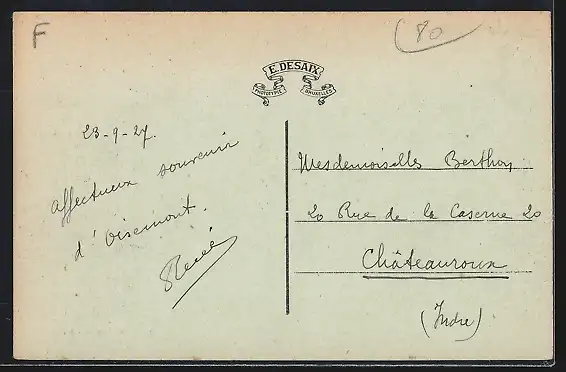 F
80
E. DESAIX
PHOTOTYPIE BRUXELLES
23-9-27.
Affectueux souvenir
d'Oisemont.
René
Mesdemoiselles Berthon
20 Rue de la Caserne 20
Châteauroux
(Indre)